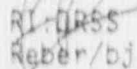 RI:URSS
Reber/bj